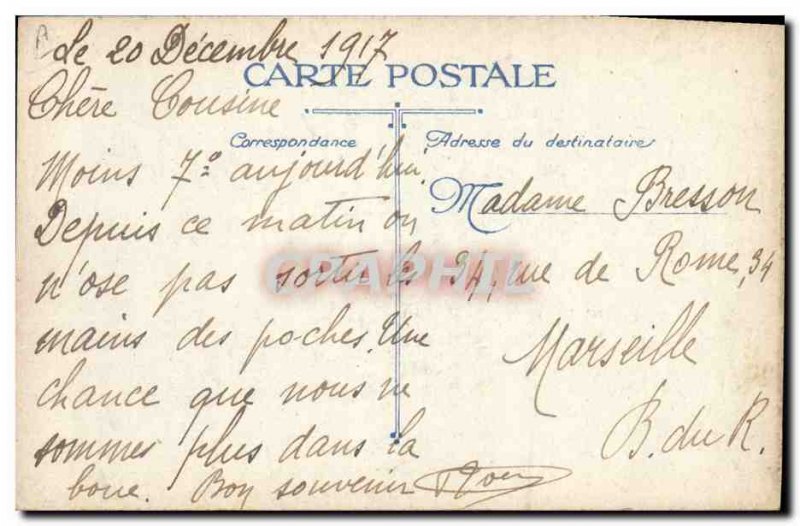 Le 20 Décembre 1917
CARTE POSTALE
Chère Cousine
Correspondance
Adresse du destinataire
Moins 7° aujourd'hui.
Depuis ce matin on
n'ose pas sortir les
mains des poches. Une
chance que nous ne
sommes plus dans la
boue. Bon souvenir
Madame Bresson
34, rue de Rome, 34
Marseille
B. du R.